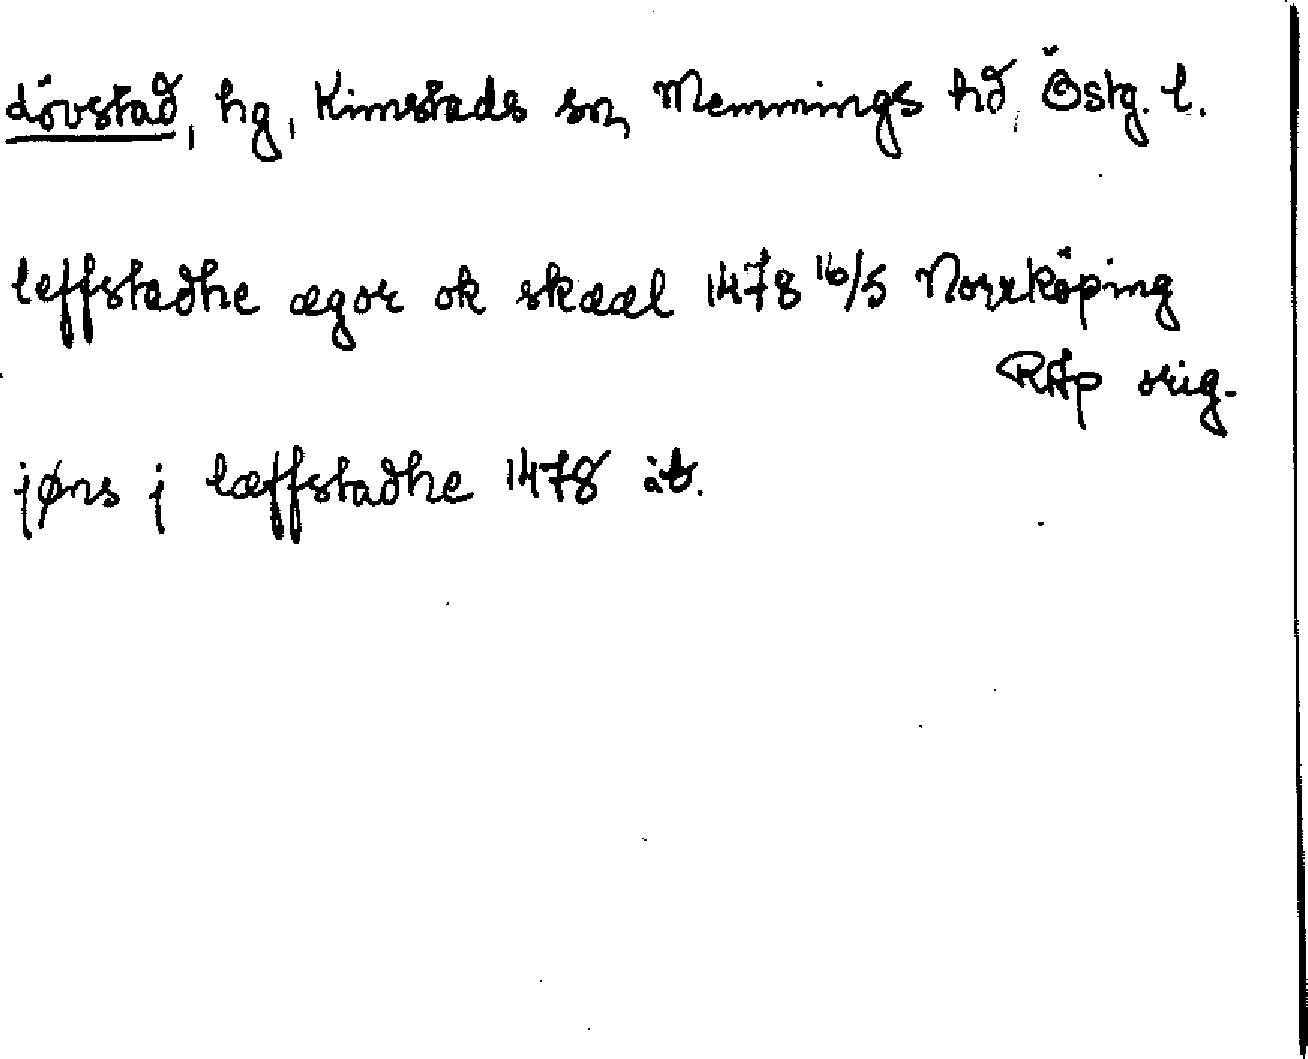 Lövstad, hg, Kimstads sn, Memmings hd, Östg. l.
leffstadhe ægor ok skææl 1478 16/5 Norrköping
RAp orig.
jøns j læffstadhe 1478 ib.